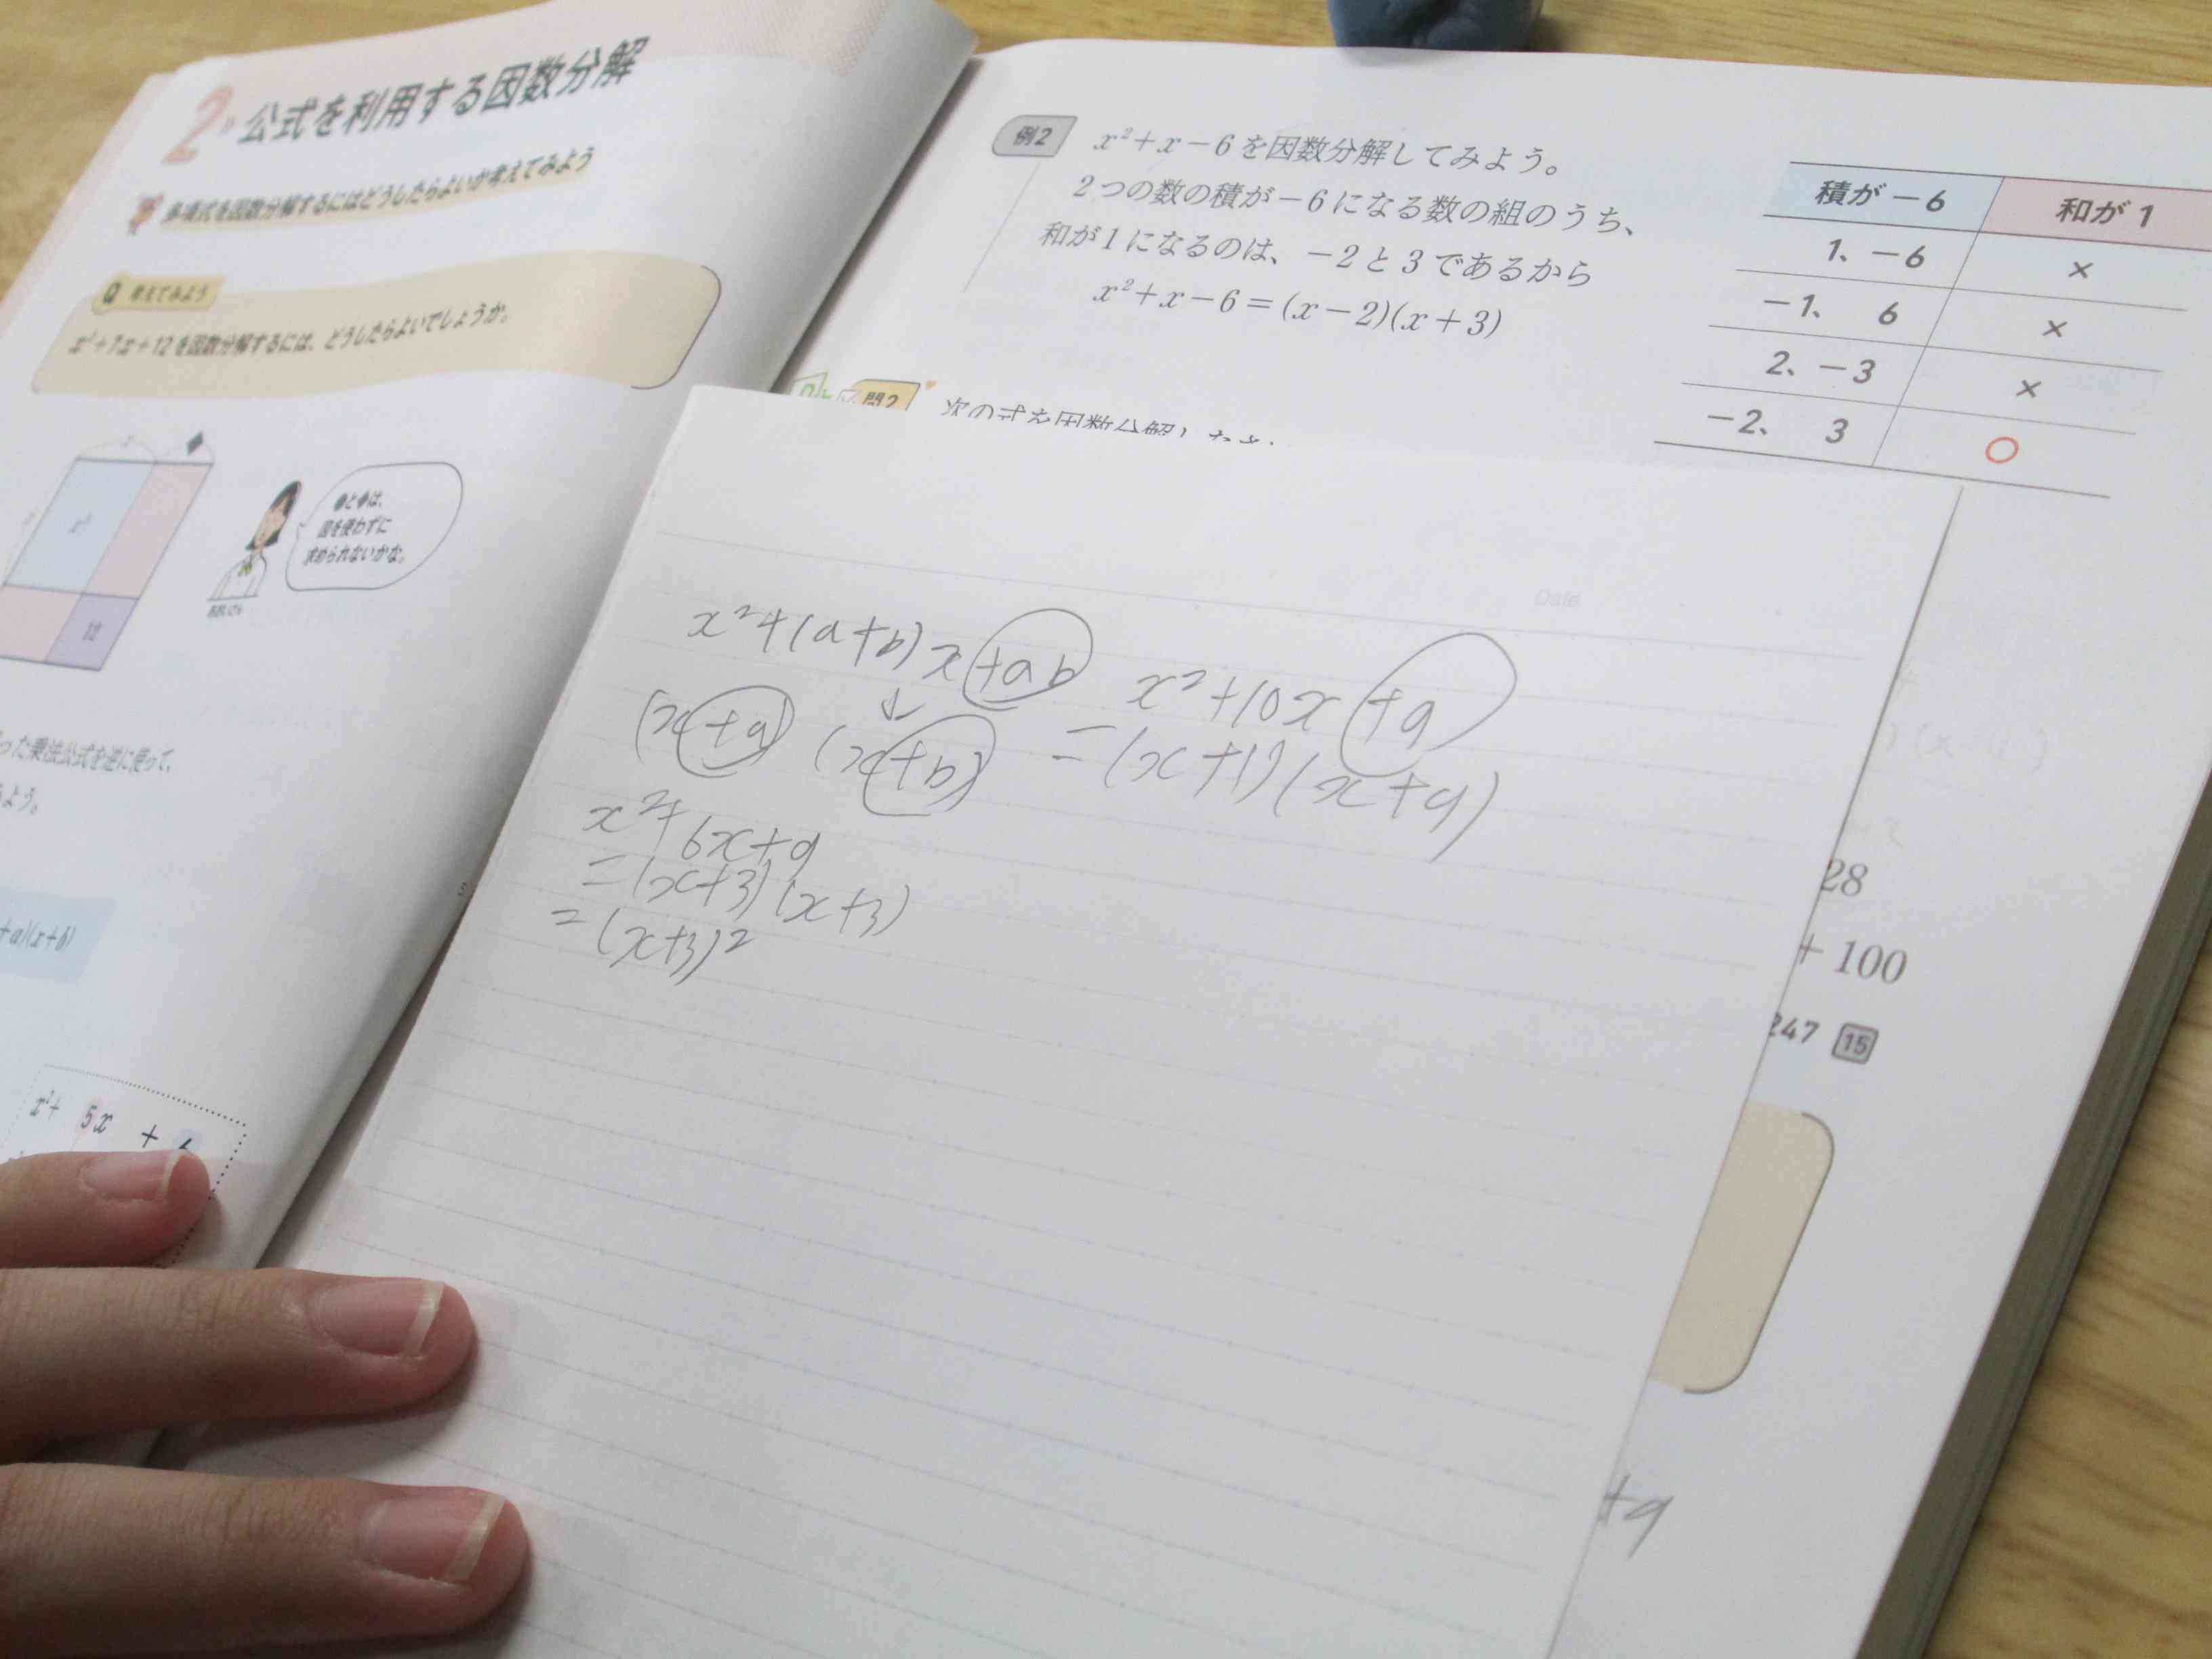 2 公式を利用する因数分解
多項式を因数分解するにはどうしたらよいか考えてみよう
Q 考えてみよう
x²+7x+12を因数分解するには、どうしたらよいでしょうか。
x²
12
●と●は、
図を使わずに
求められないかな。
った乗法公式を逆に使って、
よう。
+a)(x+b)
x²+ 5x +
例2 x²+x−6を因数分解してみよう。
2つの数の積が−6になる数の組のうち、
和が1になるのは、−2と3であるから
x²+x−6=(x−2)(x+3)
積が−6 和が1
1、−6 ×
−1、 6 ×
2、−3 ×
−2、 3 ○
問2 次の式を因数分解しなさい
Date
x²+(a+b)x+ab
(x+a)(x+b)
x²+10x+9
=(x+1)(x+9)
x²+6x+9
=(x+3)(x+3)
=(x+3)²
28
+100
247 15
+9